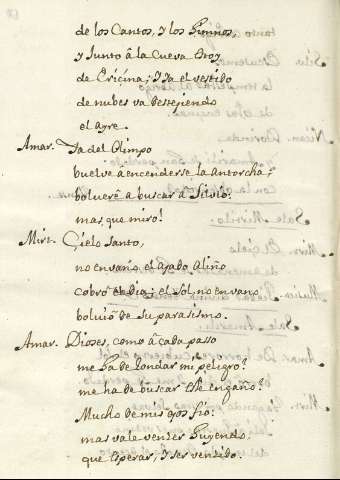 de los Cantos, y los Himnos,
y Junto â la Cueva estoy
de Ericina; y ya el vestido
de nubes va destejiendo
el ayre.
Amar. Ya del Olimpo
buelve a encenderse la Antorcha;
bolverè a buscar â Silvio:
mas, que miro!
Mirt. Cielo Santo,
no en vano, el Ajado Aliño
cobrò el dia; el Sol, no en vano
bolviò de su parasismo.
Amar. Dioses, como â cada passo
me ha de rondar mi peligro?
me ha de buscar esse engaño?
Mucho de mis ojos fio:
mas vale vencer huyendo,
que esperar, y ser vencido.